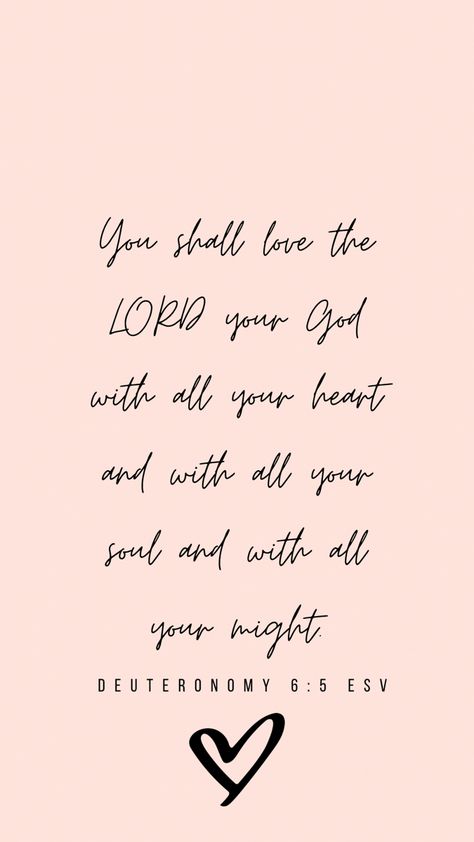 You shall love the
LORD your God
with all your heart
and with all your
soul and with all
your might.
DEUTERONOMY 6:5 ESV